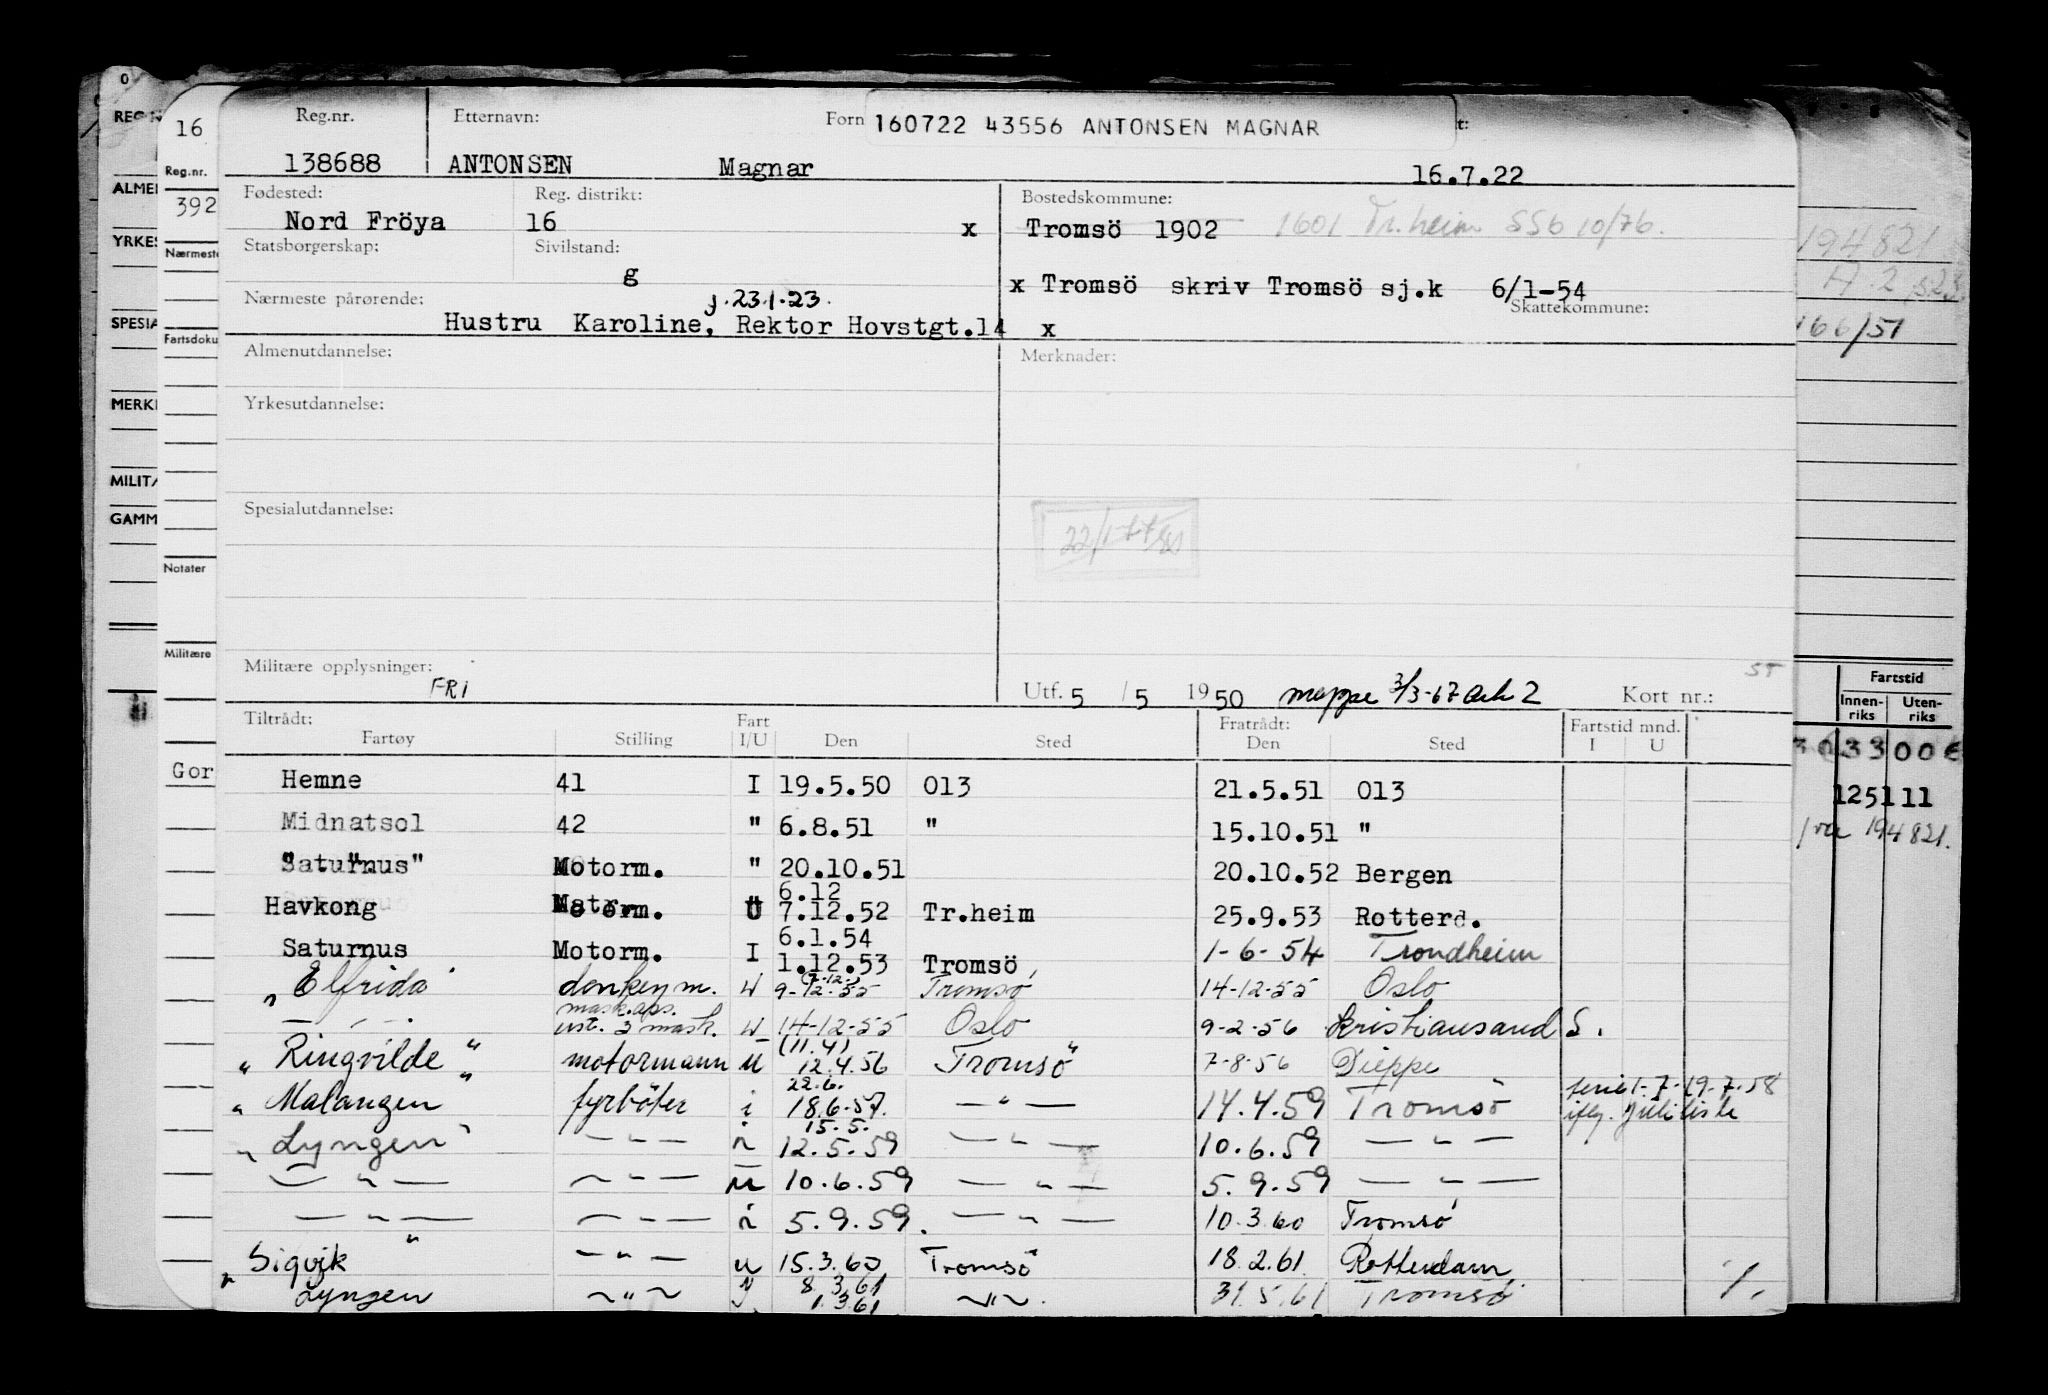 O
REG N
16
Reg.nr.
Etternavn:
Forn
160722 43556 ANTONSEN MAGNAR
t:
138688
ANTONSEN
Magnar
16.7.22
Reg.nr.
ALMEI
392
Fødested:
Reg. distrikt:
Bostedskommune:
Nord Fröya
16
x
Tromsö 1902
1601 Tr.heim SSb 10/76.
194821
YRKES
Nærmeste
Statsborgerskap:
Sivilstand:
g
A 2
x Tromsö skriv Tromsö sj.k 6/1-54
Skattekommune:
Nærmeste pårørende:
j. 23.1.23.
Hustru Karoline, Rektor Hovstgt.14
x
SPESIA
166/51
Fartsdoku
Almenutdannelse:
Merknader:
MERKI
Yrkesutdannelse:
MILITÆ
GAMM
Spesialutdannelse:
Notater
Militære
Militære opplysninger:
FRI
Utf. 5 / 5 1950 mappe 3/3-67 Ark 2
Kort nr.:
ST
Fartstid
Innen-riks
Uten-riks
Tiltrådt:
Fartøy
Stilling
Fart I/U
Den
Sted
Fratrådt:
Den
Sted
Fartstid mnd.
I
U
Gor
Hemne 41 I 19.5.50 013 21.5.51 013
125111
Midnatsol 42 " 6.8.51 " 15.10.51 "
fra 194821.
"Saturnus" Motorm. " 20.10.51 20.10.52 Bergen
6.12
Havkong U 7.12.52 Tr.heim 25.9.53 Rotterd.
6.1.54
Saturnus Motorm. I 1.12.53 Tromsö 1-6-54 Trondheim
"Elfrida" donkeym. 9-12-55 Tromsö 14-12-55 Oslo
mask.aps.
— " — ust. 3 mask. 14-12-55 Oslo 9-2-56 Kristiansand S.
(11.4)
"Ringvilde" motormann U 12.4.56 Tromsö 7-8-56 Dieppe
22.6.
"Malangen" fyrböter i 18.6.57. — " — 14.4.59 Tromsö
ferie 1.7-19.7.58
iflg. juliliste
15.5.
"Lyngen" — " — i 12.5.59 — " — 10.6.59 — " —
— " — — " — u 10.6.59 — " — 5.9.59 — " —
— " — — " — i 5.9.59. — " — 10.3.60 Tromsö
"Sigvik" — " — u 15.3.60 Tromsö 18.2.61 Rotterdam
8.3.61
Lyngen — " — 1.3.61 — " — 31.5.61 Tromsö